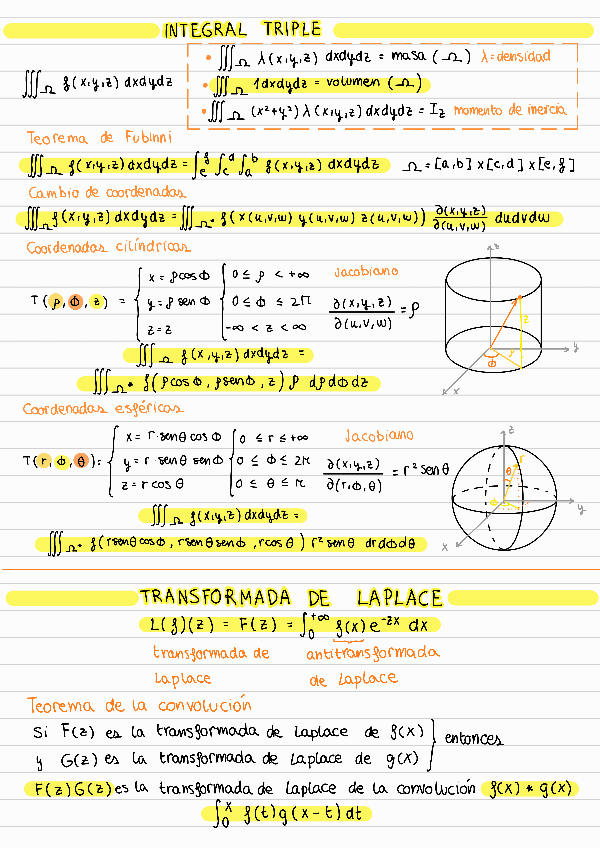 INTEGRAL TRIPLE
∭_Ω f(x,y,z) dxdydz
• ∭_Ω λ(x,y,z) dxdydz = masa (Ω) λ=densidad
• ∭_Ω 1dxdydz = volumen (Ω)
• ∭_Ω (x²+y²) λ(x,y,z) dxdydz = I_z momento de inercia
Teorema de Fubinni
∭_Ω f(x,y,z) dxdydz = ∫_e^f ∫_c^d ∫_a^b f(x,y,z) dxdydz Ω = [a,b] x [c,d] x [e,f]
Cambio de coordenadas
∭_Ω f(x,y,z) dxdydz = ∭_Ω* f(x(u,v,w) y(u,v,w) z(u,v,w)) ∂(x,y,z)/∂(u,v,w) dudvdw
Coordenadas cilíndricas
T(ρ,Φ,z) = { x = ρcosΦ { 0 ≤ ρ < +∞ Jacobiano
y = ρ senΦ 0 ≤ Φ ≤ 2π ∂(x,y,z)/∂(u,v,w) = ρ
z = z -∞ < z < ∞
∭_Ω f(x,y,z) dxdydz =
∭_Ω* f(ρcosΦ, ρsenΦ, z) ρ dρdΦdz
z
z
y
ρ
Φ
x
Coordenadas esféricas
T(r,Φ,θ) = { x = r·senθ cosΦ { 0 ≤ r ≤ +∞ Jacobiano
y = r·senθ senΦ 0 ≤ Φ ≤ 2π ∂(x,y,z)/∂(r,Φ,θ) = r² senθ
z = r cosθ 0 ≤ θ ≤ π
∭_Ω f(x,y,z) dxdydz =
∭_Ω* f(rsenθcosΦ, rsenθsenΦ, rcosθ) r² senθ drdΦdθ
z
r
θ
Φ
y
x
TRANSFORMADA DE LAPLACE
L(f)(z) = F(z) = ∫_0^{+∞} f(x) e^{-zx} dx
transformada de antitransformada
Laplace de Laplace
Teorema de la convolución
Si F(z) es la transformada de Laplace de f(x) } entonces
y G(z) es la transformada de Laplace de g(x)
F(z)G(z) es la transformada de Laplace de la convolución f(x) * g(x)
∫_0^x f(t)g(x-t)dt